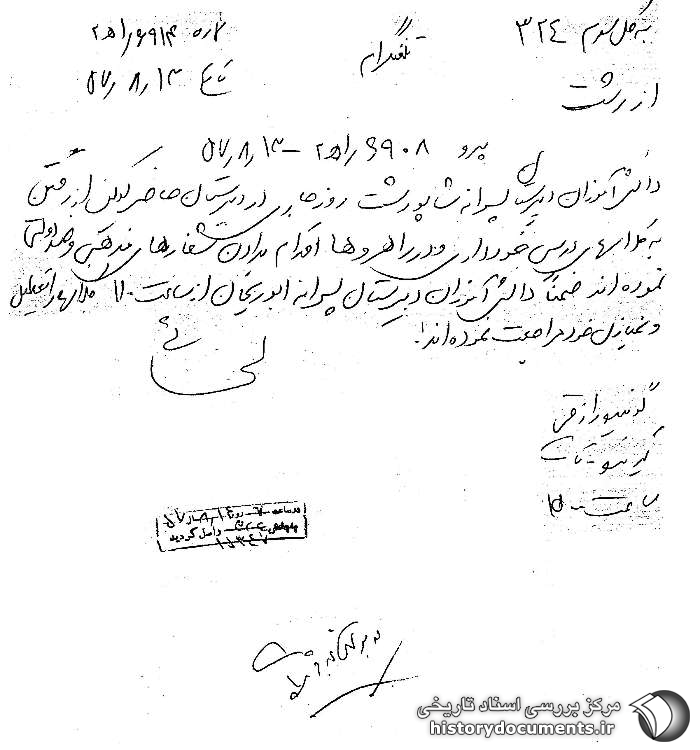 به کل سوم ۳۲۴
تلفنگرام
شماره ۲ھ۱ر۶۹۱۴
از رشت
تاریخ ۵۷٫۸٫۱۳
پیرو ۲ھ۱ر۶۹۰۸ – ۵۷٫۸٫۱۳
دانش آموزان دبیرستان پسرانه شاپور رشت روز جاری در دبیرستان حاضر لکن از رفتن
به کلاسهای درس خودداری و در راهروها اقدام بدادن شعارهای مذهبی و ضد دولتی
نموده اند ضمناً دانش آموزان دبیرستان پسرانه ابوریحان از ساعت ۱۱۰۰ کلاسها را تعطیل
و بمنازل خود مراجعت نموده اند.
گوینده رازقی
گیرنده
ساعت
در ساعت روز
واصل گردید
مرکز بررسی اسناد تاریخی
historydocuments.ir